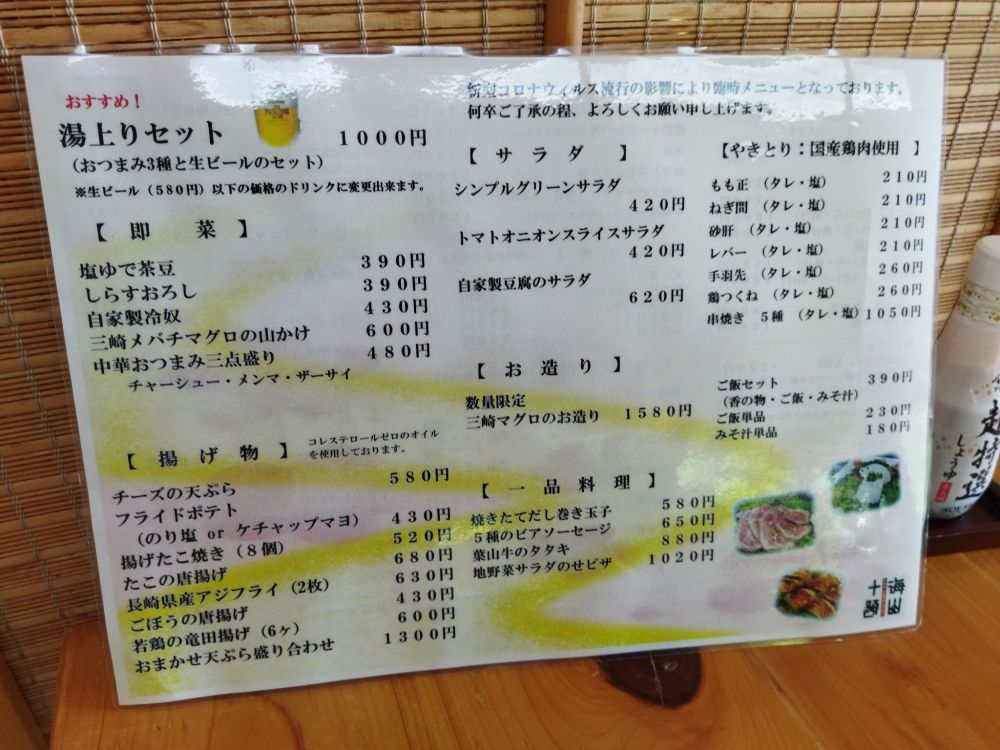 おすすめ！
湯上りセット 1000円
（おつまみ3種と生ビールのセット）
※生ビール（580円）以下の価格のドリンクに変更出来ます。
【 即 菜 】
塩ゆで茶豆 390円
しらすおろし 390円
自家製冷奴 430円
三崎メバチマグロの山かけ 600円
中華おつまみ三点盛り 480円
チャーシュー・メンマ・ザーサイ
【 揚 げ 物 】 コレステロールゼロのオイル
を使用しております。
チーズの天ぷら 580円
フライドポテト
（のり塩 or ケチャップマヨ） 430円
揚げたこ焼き（8個） 520円
たこの唐揚げ 680円
長崎県産アジフライ（2枚） 630円
ごぼうの唐揚げ 430円
若鶏の竜田揚げ（6ヶ） 600円
おまかせ天ぷら盛り合わせ 1300円
新型コロナウィルス流行の影響により臨時メニューとなっております。
何卒ご了承の程、よろしくお願い申し上げます。
【 サ ラ ダ 】
シンプルグリーンサラダ
420円
トマトオニオンスライスサラダ
420円
自家製豆腐のサラダ
620円
【 お 造 り 】
数量限定
三崎マグロのお造り 1580円
【 一 品 料 理 】
焼きたてだし巻き玉子 580円
5種のビアソーセージ 650円
葉山牛のタタキ 880円
地野菜サラダのせピザ 1020円
【やきとり：国産鶏肉使用 】
もも正 （タレ・塩） 210円
ねぎ間 （タレ・塩） 210円
砂肝 （タレ・塩） 210円
レバー （タレ・塩） 210円
手羽先 （タレ・塩） 260円
鶏つくね （タレ・塩） 260円
串焼き 5種 （タレ・塩） 1050円
ご飯セット 390円
（香の物・ご飯・みそ汁）
ご飯単品 230円
みそ汁単品 180円
超特選
しょうゆ